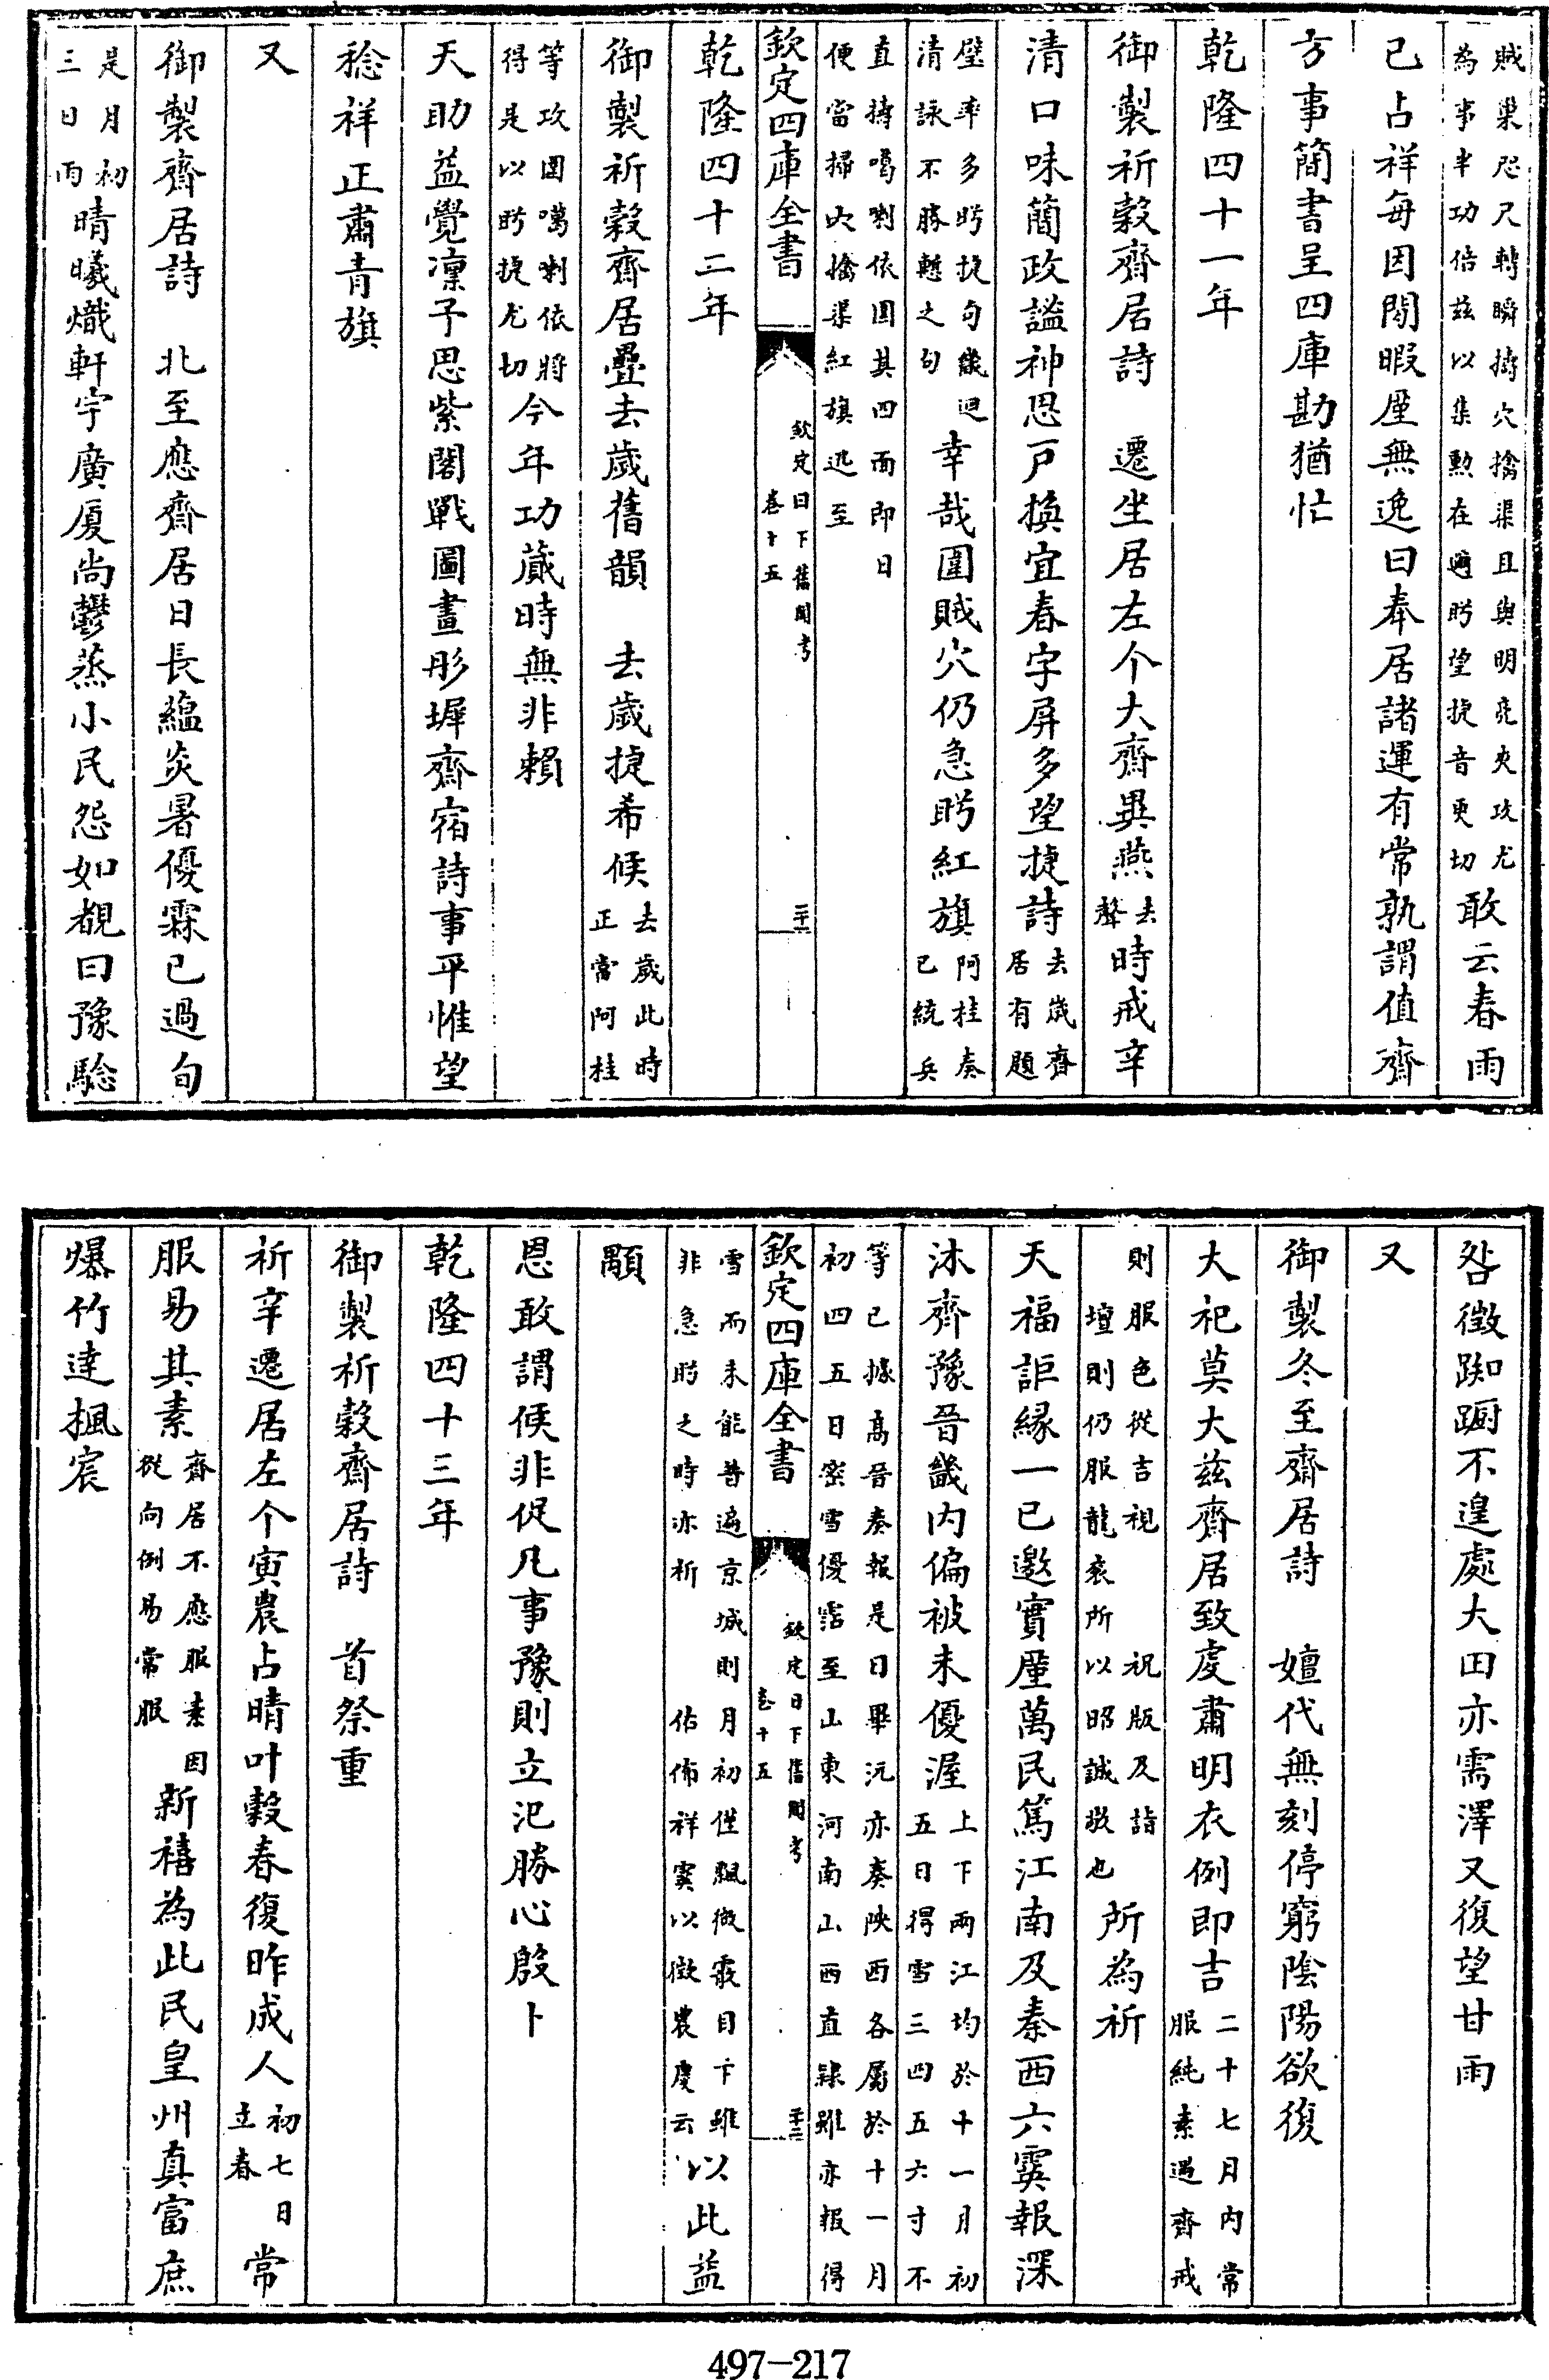 賊巢咫尺轉瞬擣穴擒渠且與明亮夾攻尤
為事半功倍兹以集勲在邇盻望捷音更切
敢云春雨
已占祥每因閒暇廑無逸曰奉居諸運有常孰謂值齋
方事簡書呈四庫勘猶忙
乾隆四十一年
御製祈穀齋居詩　遷坐居左个大齋異燕去聲時戒辛
清口味簡政謐神思戸換宜春字屏多望捷詩
去歲齋
居有題
壁率多盻捷句幾迴
清詠不勝慙之句
幸哉圍賊穴仍急盻紅旗
阿桂奏
已統兵
直擣噶喇依圍其四面即日
便當掃穴擒渠紅旗迅至
欽定四庫全書
欽定日下舊聞考
卷十五
二十一
乾隆四十二年
御製祈穀齋居疊去歲舊韻　去歲捷希候
去歲此時
正當阿桂
等攻圍噶喇依將
得是以盻捷尤切
今年功蕆時無非賴
天助益覺凜予思紫閣戰圖畫彤墀齋宿詩事平惟望
稔祥正肅青旗
又
御製齋居詩　北至應齋居日長蘊炎暑優霖已過旬
是月初
三日雨
晴曦熾軒宇廣廈尚鬱蒸小民怨如覩曰豫騐
咎徵踟躕不遑處大田亦需澤又復望甘雨
又
御製冬至齋居詩　嬗代無刻停窮陰陽欲復
大祀莫大兹齋居致䖍肅明衣例即吉
二十七月内常
服純素遇齋戒
則服色從吉視　祝版及詣
壇則仍服龍衮所以昭誠敬也
所為祈
天福詎緣一已邀實廑萬民篤江南及秦西六霙報深
沐齋豫晉畿内偏被未優渥
上下兩江均於十一月初
五日得雪三四五六寸不
等已據高晉奏報是日畢沅亦奏陜西各屬於十一月
初四五日密雪優霑至山東河南山西直隸雖亦報得
雪而未能普遍京城則月初僅飄微霰目下雖
非急盻之時亦祈　佑佈祥霙以徵農慶云
以此益
顒
恩敢謂候非促凡事豫則立汜勝心殷卜
乾隆四十三年
御製祈穀齋居詩　首祭重
祈辛遷居左个寅農占晴叶穀春復昨成人
初七日
立春
常
服易其素
齋居不應服素因
從向例易常服
新禧為此民皇州真富庶
爆竹達楓宸
欽定四庫全書
欽定日下舊聞考
卷十五
二十二
497-217